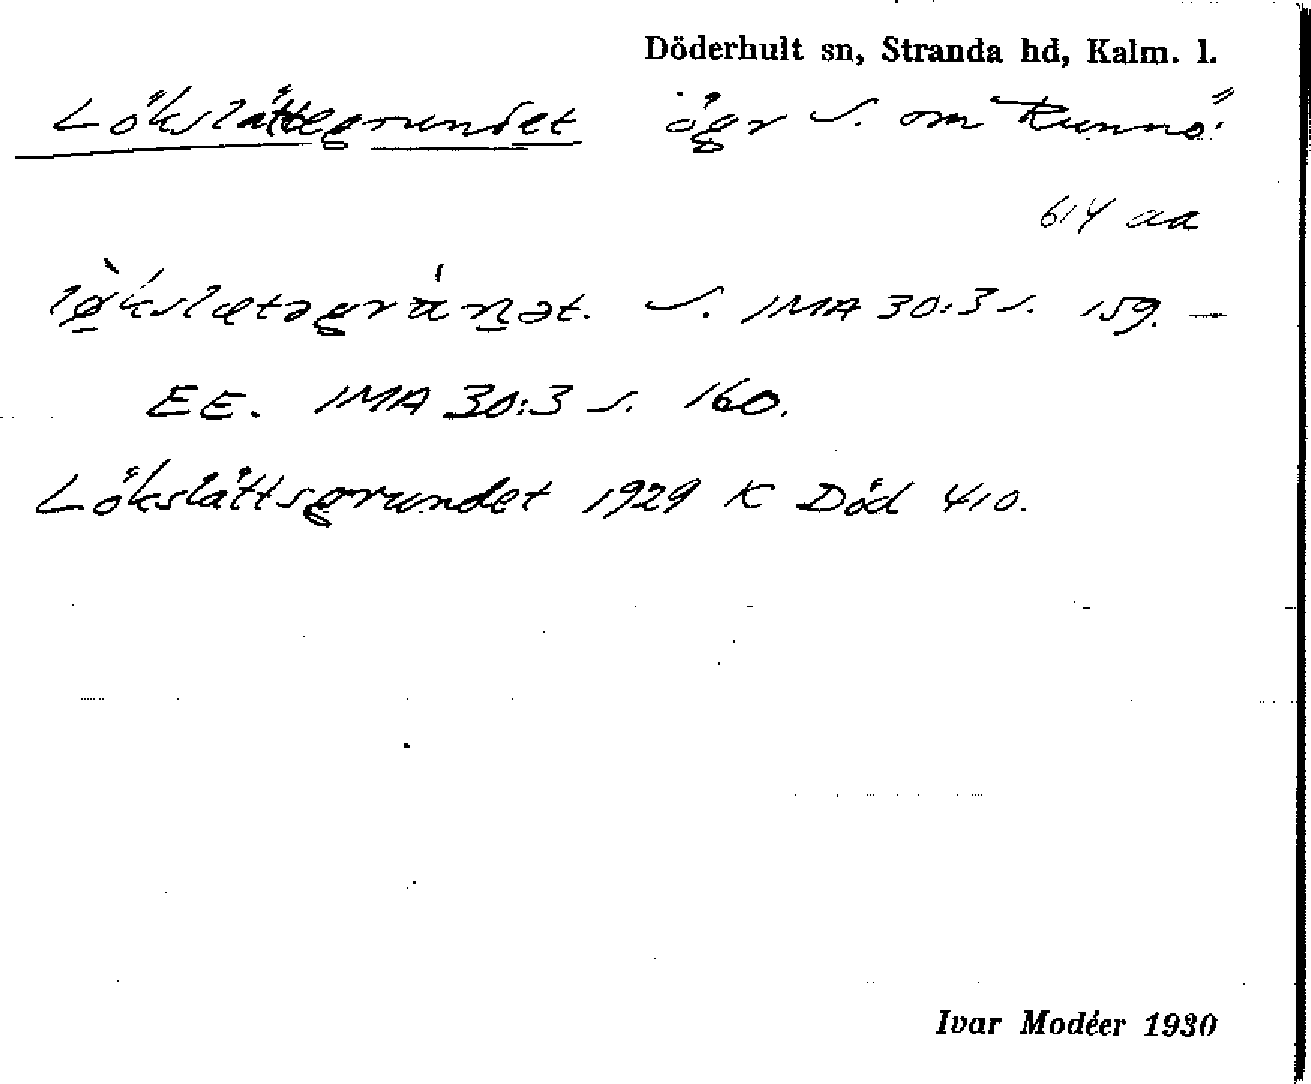 Döderhult sn, Stranda hd, Kalm. l.
Lökslättegrundet ögr S. om Runnö.
614 aa
lø̀kslætəgránət. S. IMA 30:3 s. 159. —
EE. IMA 30:3 s. 160.
Lökslättsgrundet 1929 K Död 410.
Ivar Modéer 1930